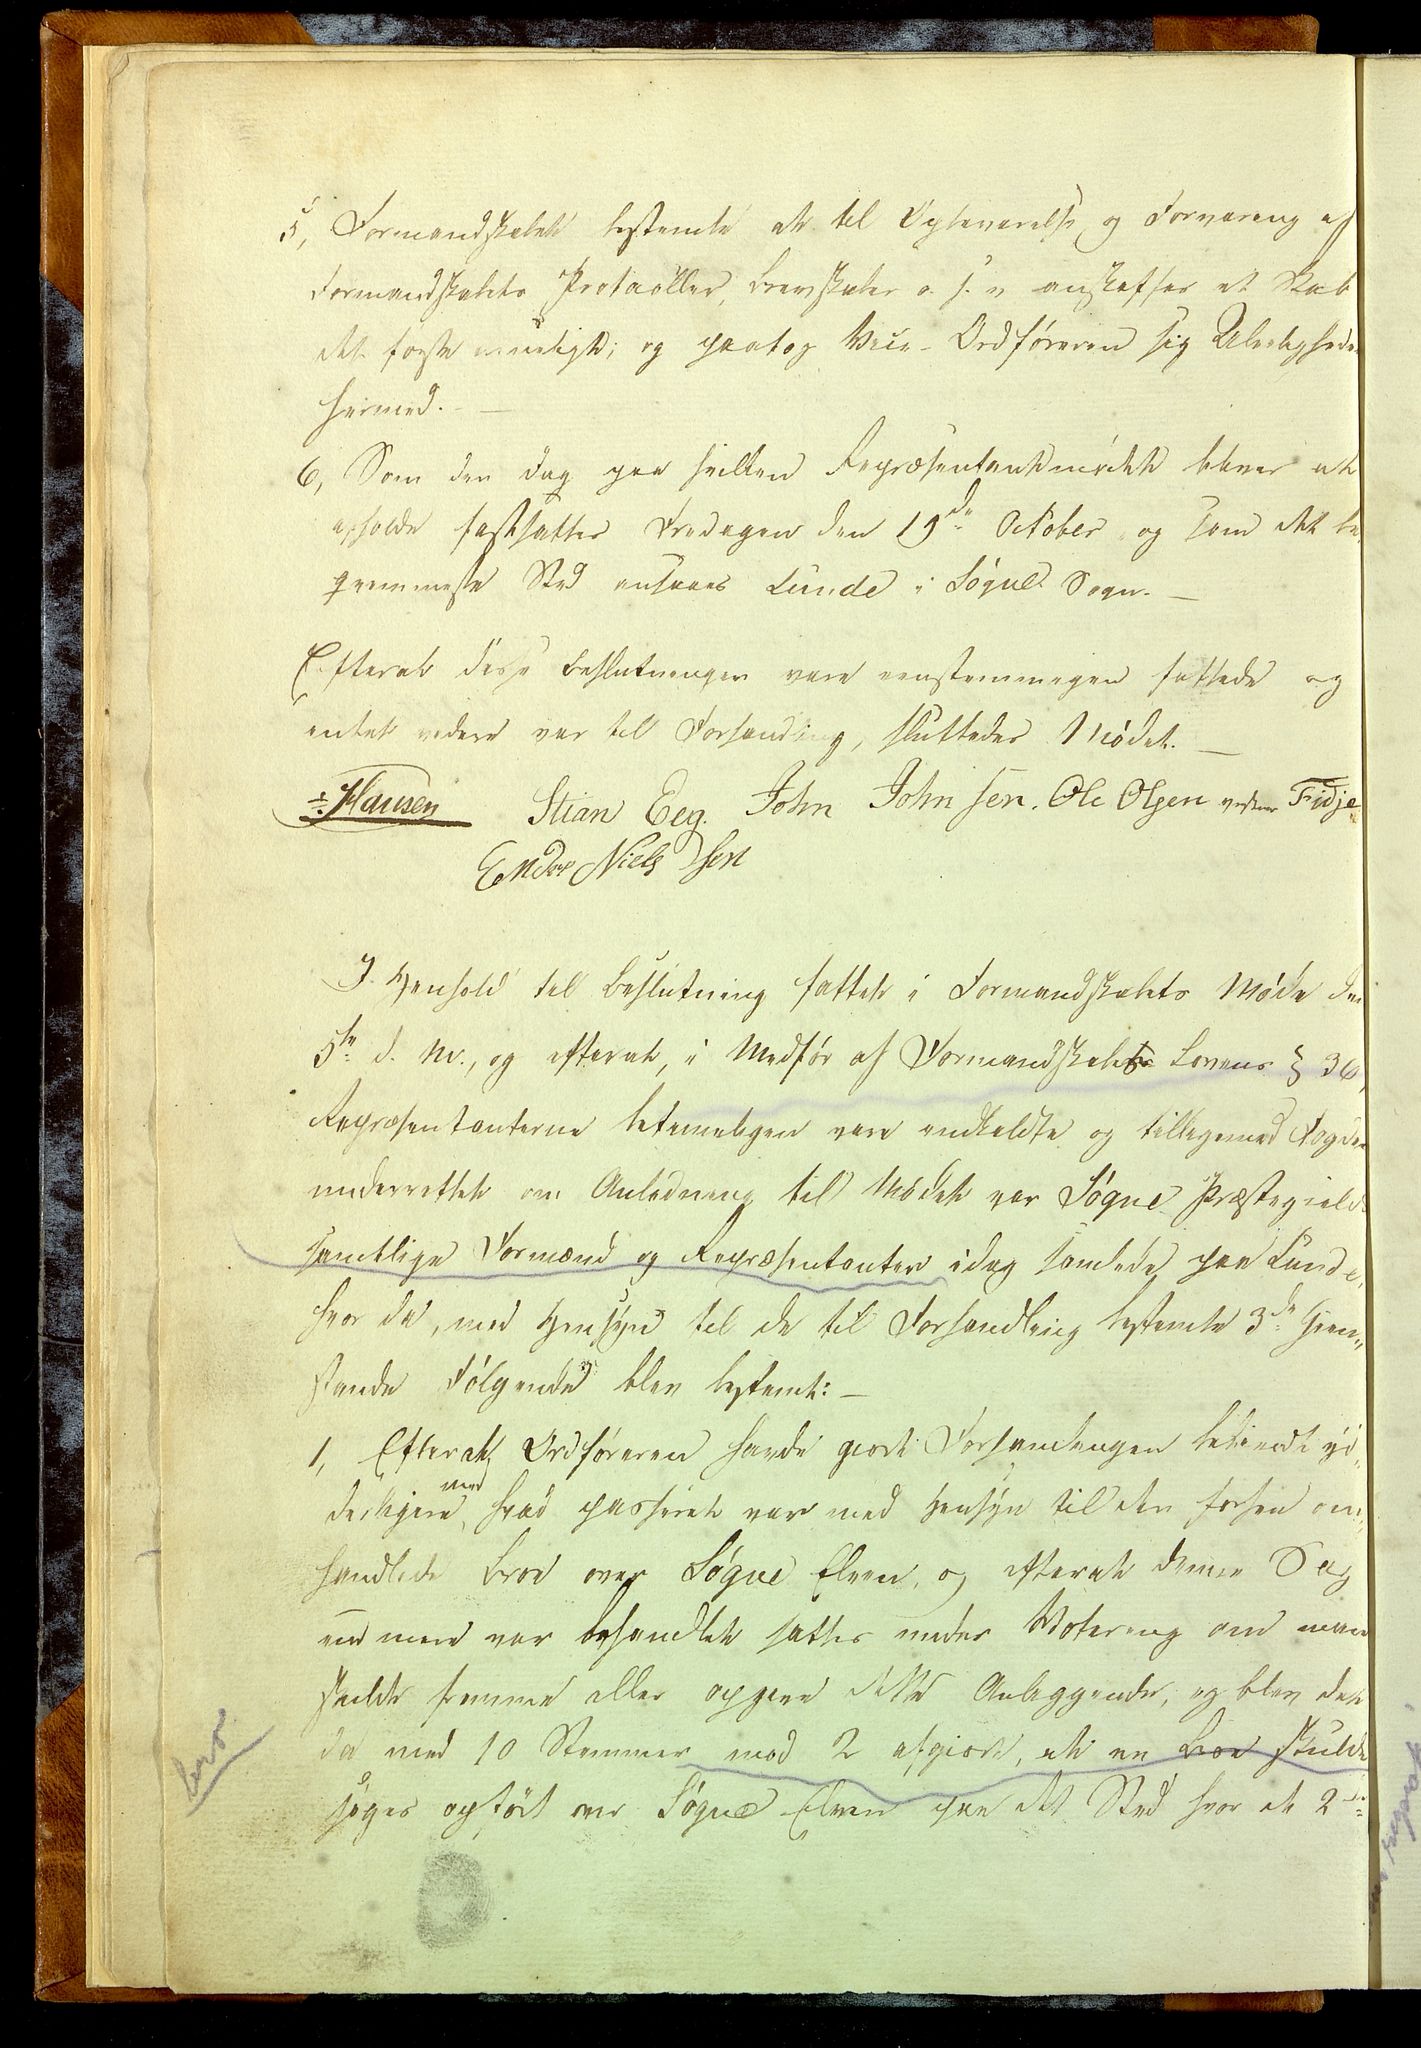 5, Formandskabet bestemte at til Opbevarelse og Forvaring af
Formandskabets Protocoller, Brevskaber o. s. v anskaffes et Skab
det første mueligt; og paatog Vice-Ordføreren sig Uleilighede
hermed. —
6, Som den Dag paa hvilken Repræsentantmødet bliver at
afholde fastsattes Fredagen den 19de October og som det be-
qvemmeste Sted ansaaes Lunde i Søgne Sogn. —
Efterat disse Beslutninger vare eenstemmigen fattede og
intet videre var til Forhandling, sluttedes Mødet. —
Hansen Stian Eeg. John Johnsen. Ole Olsen Fidje
Ender Nielssen
I Henhold til Beslutning fattet i Formandskabets Møde den
5te d. M., og efterat, i Medfør af Formandskabs Lovens § 36,
Repræsentanterne betimeligen vare indkaldte og tilligemed Fogden
underrettet om Anledning til Mødet var Søgne Præstegields
samtlige Formænd og Repræsentanter idag samlede paa Lunde,
hvor da, med Hensyn til de til Forhandling bestemte 3de Gien-
stande Følgende blev bestemt: —
1, Efterat Ordføreren havde giort Forsamlingen bekiendt yd-
med
derligere, hvad passeret var med Hensyn til den forhen om-
handlede Broe over Søgne Elven, og efterat denne Sag
end mere var behandlet sattes under Votering om man
skulde fremme eller opgive dette Anliggende, og blev det
da med 10 Stemmer mod 2 afgiort, at en Broe skulde
søges opført over Søgne Elven paa det Sted hvor de 2de
bro